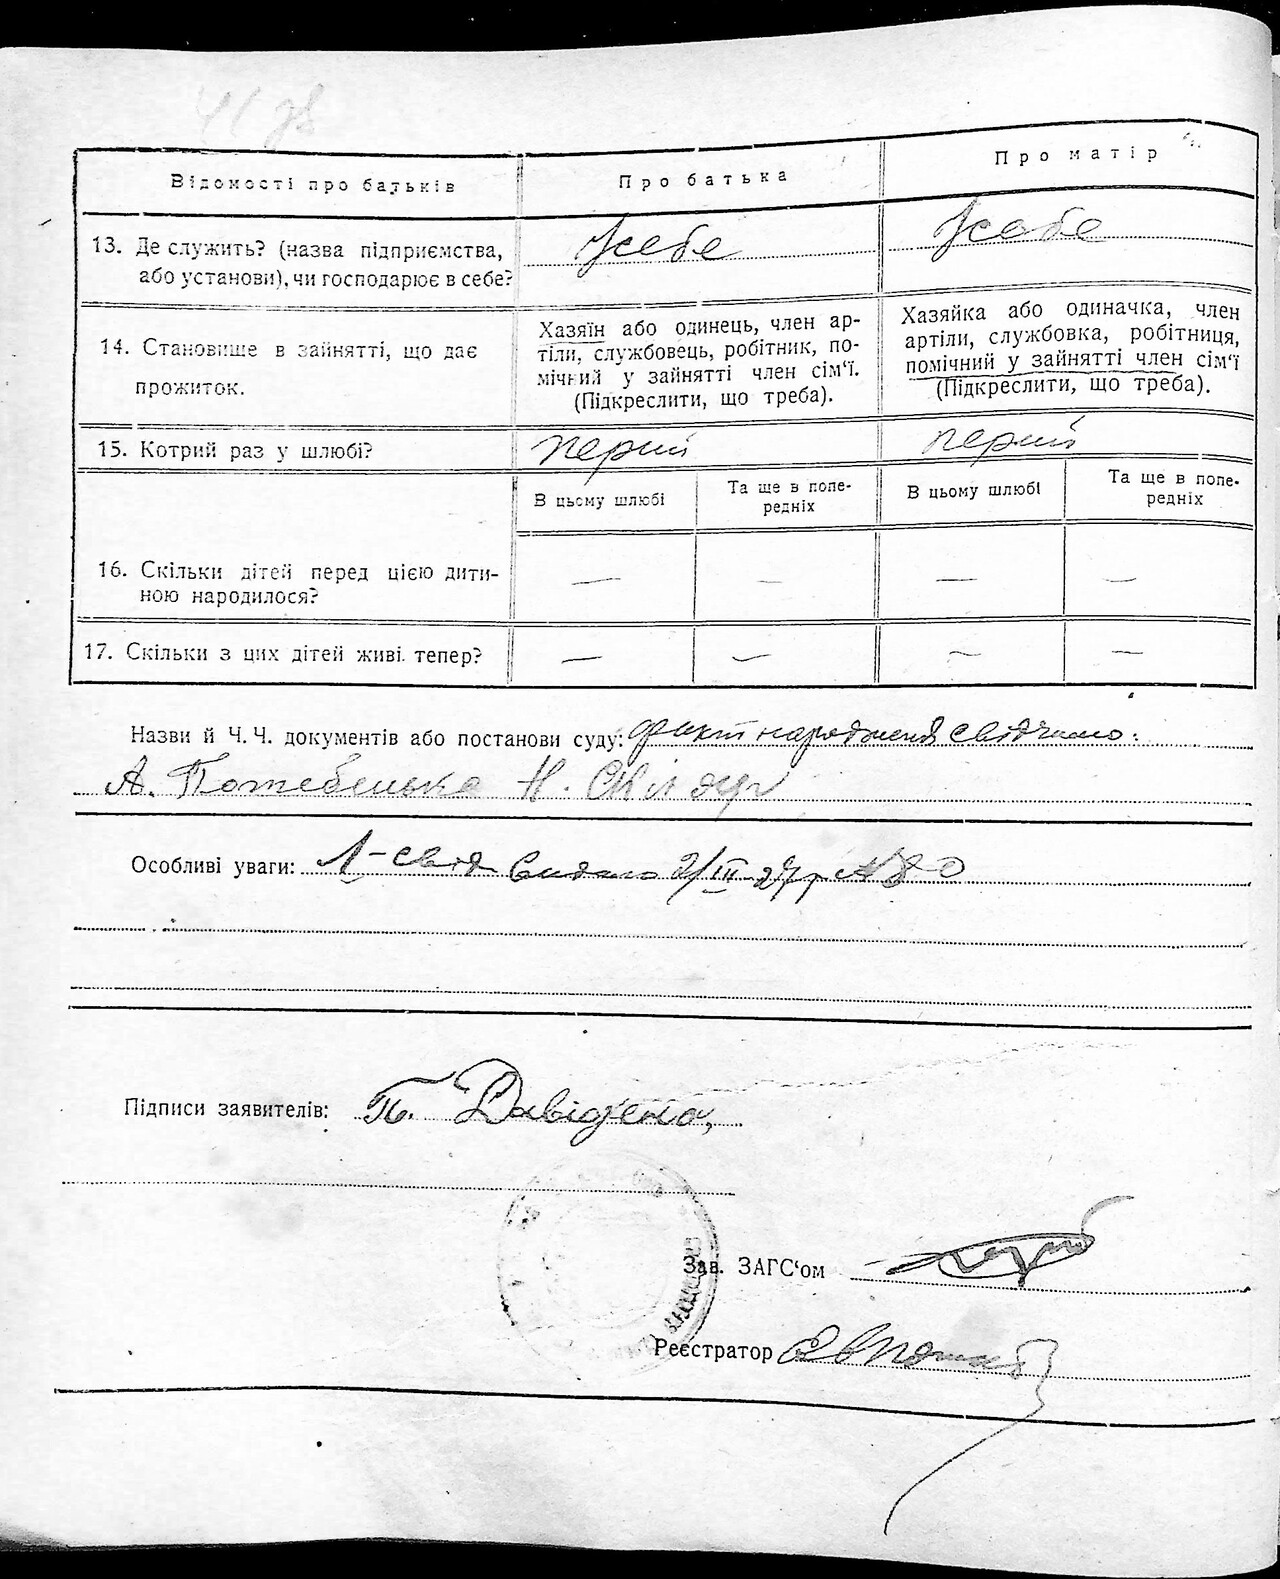 41 зв
Відомості про батьків
Про батька
Про матір
13. Де служить? (назва підприємства,
або установи), чи господарює в себе?
У себе
У себе
14. Становище в зайнятті, що дає
прожиток.
Хазяїн або одинець, член ар-
тіли, службовець, робітник, по-
мічний у зайнятті член сім'ї.
(Підкреслити, що треба).
Хазяйка або одиначка, член
артіли, службовка, робітниця,
помічний у зайнятті член сім'ї
(Підкреслити, що треба).
15. Котрий раз у шлюбі?
перший
перший
В цьому шлюбі
Та ще в попе-
редніх
В цьому шлюбі
Та ще в попе-
редніх
16. Скільки дітей перед цією дити-
ною народилося?
— — — —
17. Скільки з цих дітей живі тепер?
— — — —
Назви й Ч. Ч. документів або постанови суду: факт народження свідчимо:
А. Потебенько Н.
Особливі уваги: видано 2/III-27р
Підписи заявителів: П. Давиденко,
Зав. ЗАГС'ом
Реєстратор